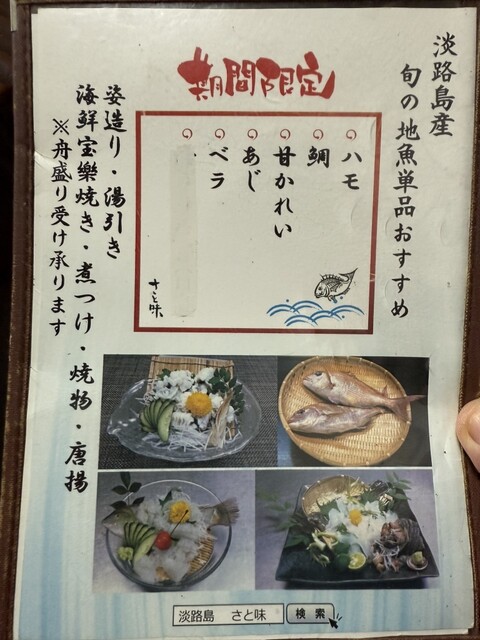 淡路島産
旬の地魚単品おすすめ
期間限定
ハモ
鯛
甘かれい
あじ
ベラ
さと味
姿造り・湯引き
海鮮宝樂焼き・煮つけ・焼物・唐揚
※舟盛り受け承ります
淡路島 さと味 検索